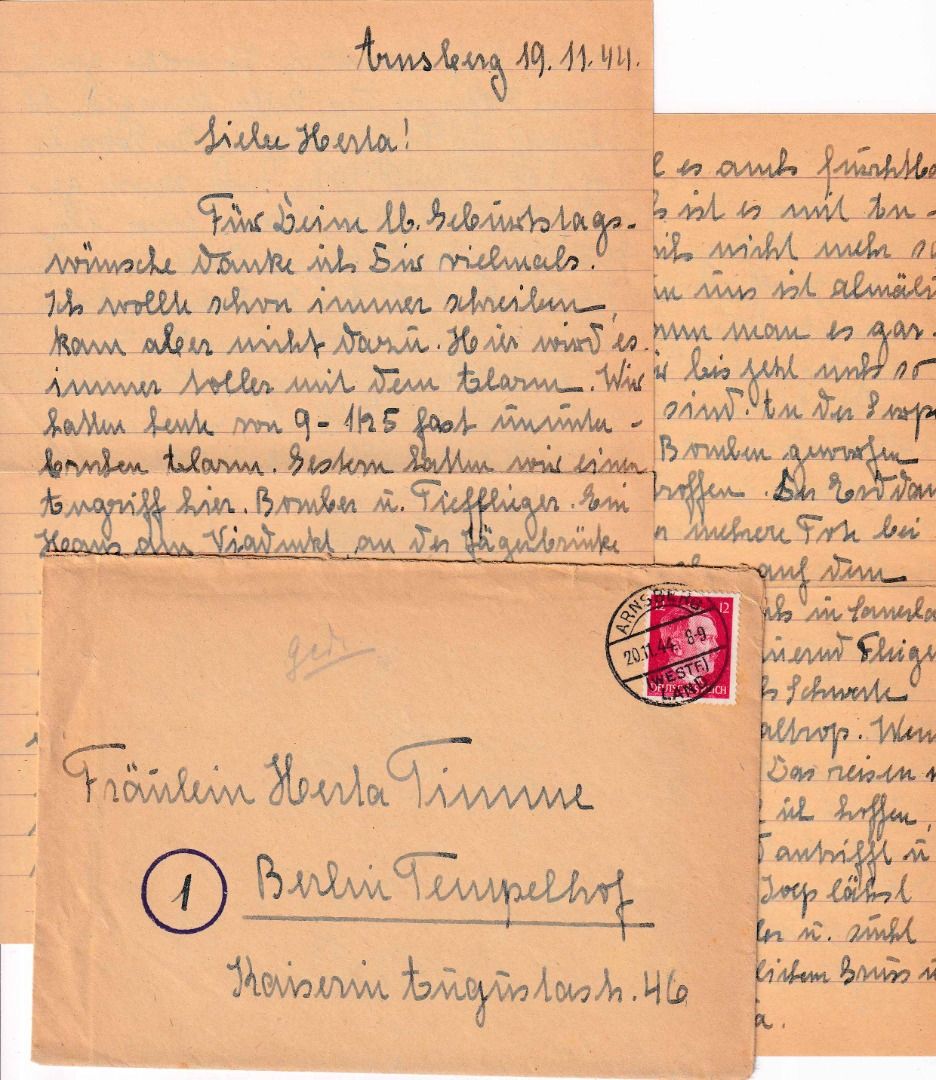 Arnsberg 19.11.44.
Liebe Herta!
Für Deine lb. Geburtstags-
wünsche danke ich Dir vielmals.
Ich wollte schon immer schreiben,
kam aber nicht dazu. Hier wird es
immer toller mit dem Alarm. Wir
hatten heute von 9 - 1/25 fast ununter-
brochen Alarm. Gestern hatten wir einen
Angriff hier. Bomber u. Tiefflieger. Ein
Haus am Viadukt, an der Jägerbrücke
es auch furchtba
ist es mit An-
nicht mehr so
uns ist almäli
man es gar-
bis jetzt noch so
sind. An der Serpe
Bomben geworfen
troffen. Am
mehrere Tote bei
auf dem
in Sauerla
auernd Flieger
Schwerte
altrop. Wenn
Das reisen
ich hoffen,
antrifft u
Joep lässt
u. sucht
lichem Gruss u
a.
gedr
ARNSBERG
20.11.44. 8-9
(WESTF)
LAND
12 12
DEUTSCHES REICH
Fräulein Herta Timme
1
Berlin Tempelhof
Kaiserin Augustastr. 46